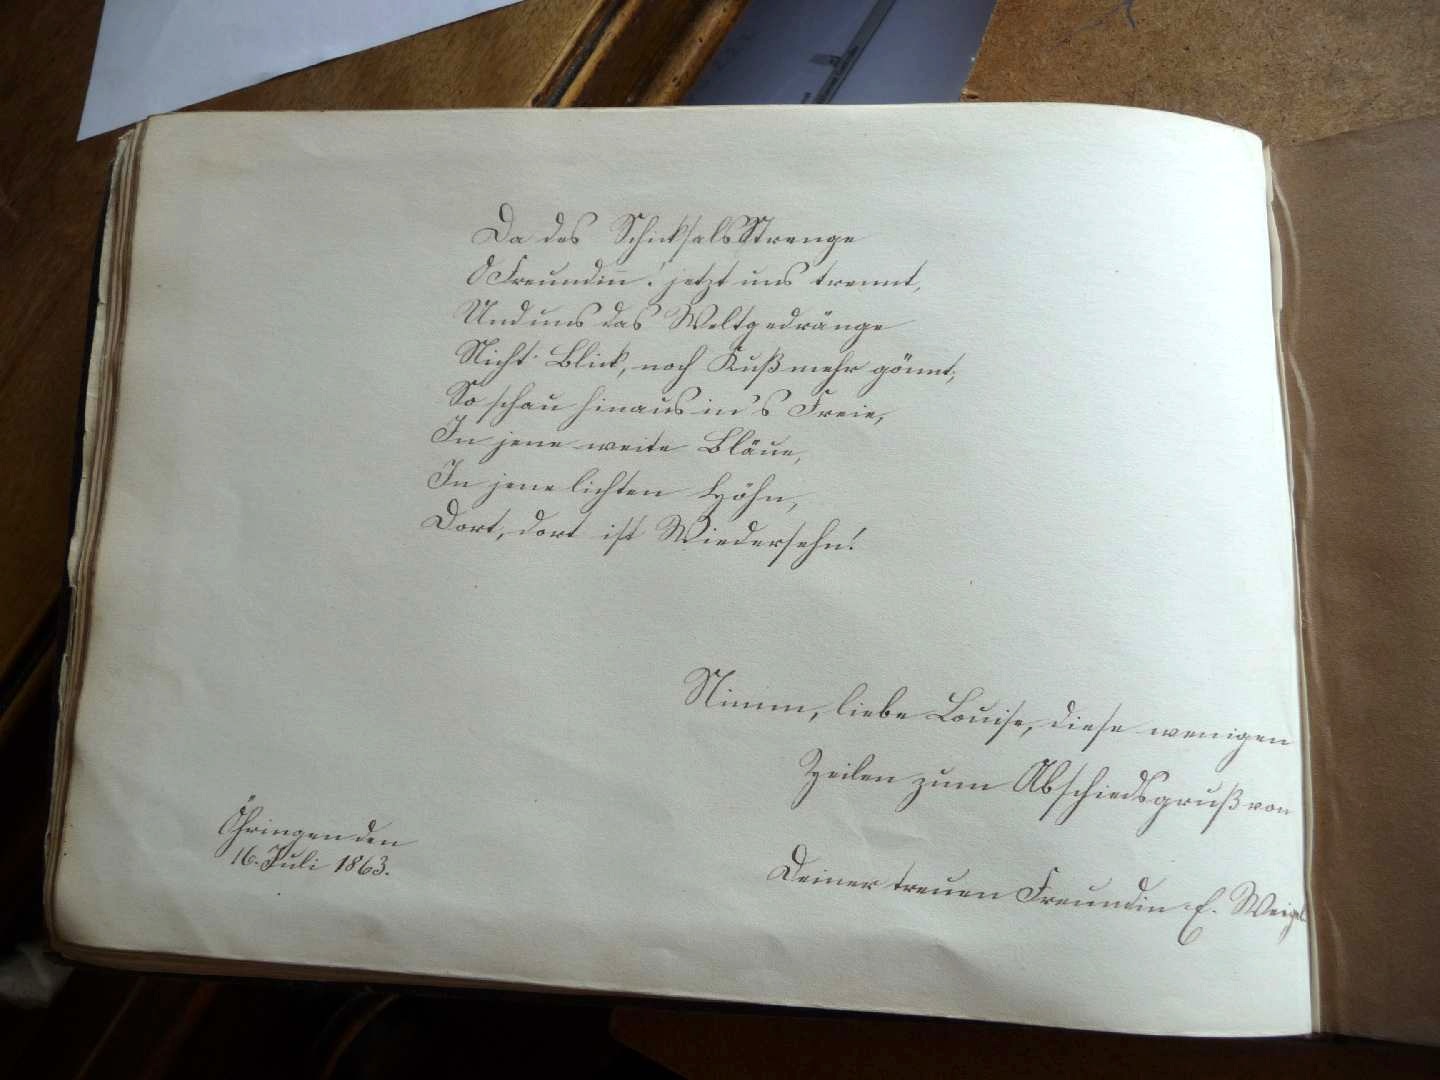 Da des Schicksals Strenge
O Freundin̅! jetzt uns trennt,
Und uns das Weltgedränge
Nicht Blick, noch Kuß mehr gönnt;
So schau hinaus in's Freie,
In jene weite Bläue,
In jene lichten Höhn,
Dort, dort ist Wiedersehn!
Nimm, liebe Louise, diese wenigen
Zeilen zum Abschiedsgruß von
Deiner treuen Freundin E. Weigel
Öhringen den
16. Juli 1863.